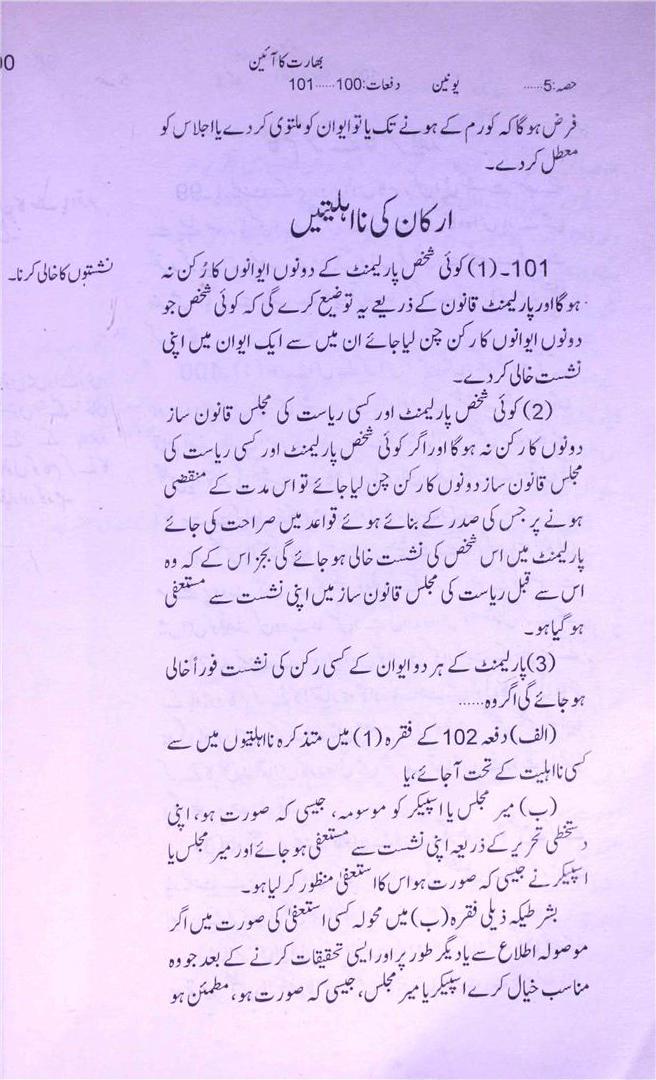 بھارت کا آئین
حصہ:5...... یونین دفعات:100......101
فرض ہوگا کہ کورم کے ہونے تک یا تو ایوان کو ملتوی کر دے یا اجلاس کو
معطل کر دے۔
ارکان کی نااہلیتیں
نشستوں کا خالی کرنا۔
101۔(1) کوئی شخص پارلیمنٹ کے دونوں ایوانوں کا رُکن نہ
ہوگا اور پارلیمنٹ قانون کے ذریعے یہ توضیع کرے گی کہ کوئی شخص جو
دونوں ایوانوں کا رکن چن لیا جائے ان میں سے ایک ایوان میں اپنی
نشست خالی کر دے۔
(2) کوئی شخص پارلیمنٹ اور کسی ریاست کی مجلس قانون ساز
دونوں کا رکن نہ ہوگا اور اگر کوئی شخص پارلیمنٹ اور کسی ریاست کی
مجلس قانون ساز دونوں کا رکن چن لیا جائے تو اس مدت کے منقضی
ہونے پر جس کی صدر کے بنائے ہوئے قواعد میں صراحت کی جائے
پارلیمنٹ میں اس شخص کی نشست خالی ہو جائے گی بجز اس کے کہ وہ
اس سے قبل ریاست کی مجلس قانون ساز میں اپنی نشست سے مستعفی
ہو گیا ہو۔
(3) پارلیمنٹ کے ہر دو ایوان کے کسی رکن کی نشست فوراً خالی
ہو جائے گی اگر وہ......
(الف) دفعہ 102 کے فقرہ (1) میں متذکرہ نااہلیتوں میں سے
کسی نااہلیت کے تحت آ جائے، یا
(ب) میر مجلس یا اسپیکر کو موسومہ، جیسی کہ صورت ہو، اپنی
دستخطی تحریر کے ذریعہ اپنی نشست سے مستعفی ہو جائے اور میر مجلس یا
اسپیکر نے جیسی کہ صورت ہو اس کا استعفیٰ منظور کر لیا ہو۔
بشرطیکہ ذیلی فقرہ (ب) میں محولہ کسی استعفیٰ کی صورت میں اگر
موصولہ اطلاع سے یا دیگر طور پر اور ایسی تحقیقات کرنے کے بعد جو وہ
مناسب خیال کرے اسپیکر یا میر مجلس، جیسی کہ صورت ہو، مطمئن ہو